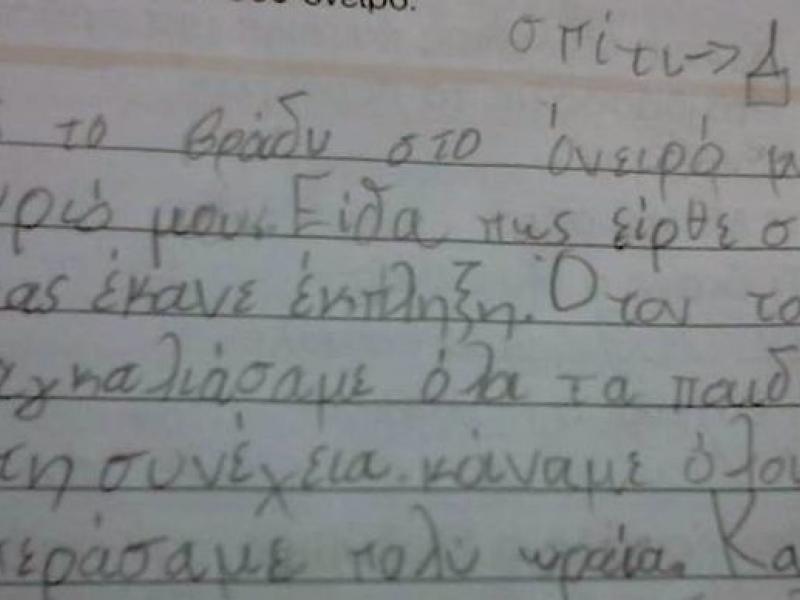 όνειρο.
σπίτι→Δ
το βράδυ στο όνειρό μ
ρό μου. Είδα πως είρθε σ
ας έκανε έκπληξη. Όταν το
γκαλιάσαμε όλα τα παιδ
τη συνέχεια κάναμε όλοι
περάσαμε πολύ ωραία. Κα